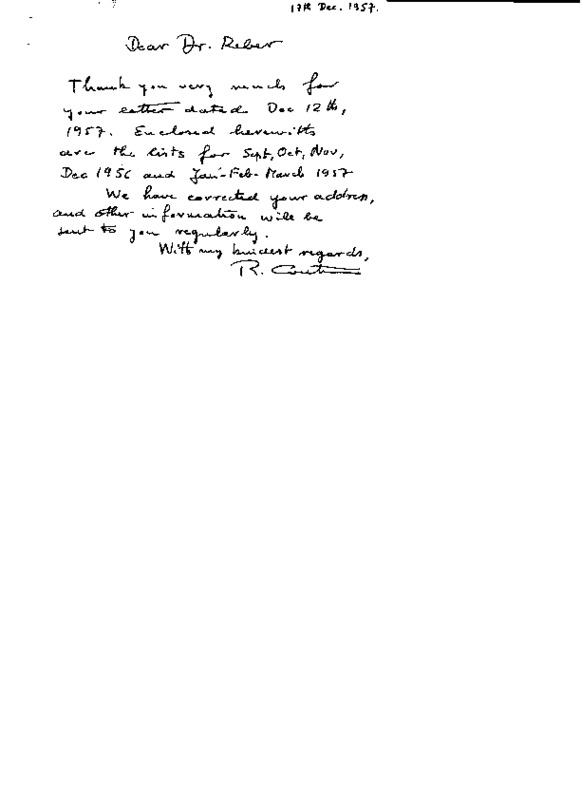 17th Dec. 1957.
Dear Dr. Reber
Thank you very much for
your letter dated Dec 12th,
1957. Enclosed herewith
are the lists for Sept, Oct, Nov,
Dec 1956 and Jan-Feb-March 1957
We have corrected your address,
and other information will be
sent to you regularly.
With my kindest regards,
R.